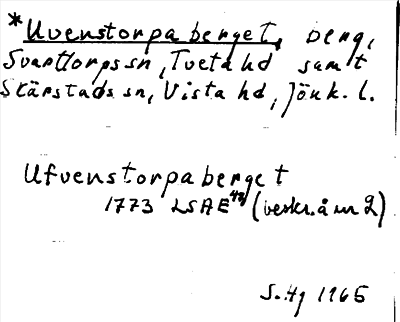 *Uvenstorpaberget, berg,
Svarttorps sn, Tveta hd samt
Skärstads sn, Vista hd, Jönk. l.
Ufvenstorpaberget
1773 LSAE (beskr. å nr 2)
S. Hg 1965